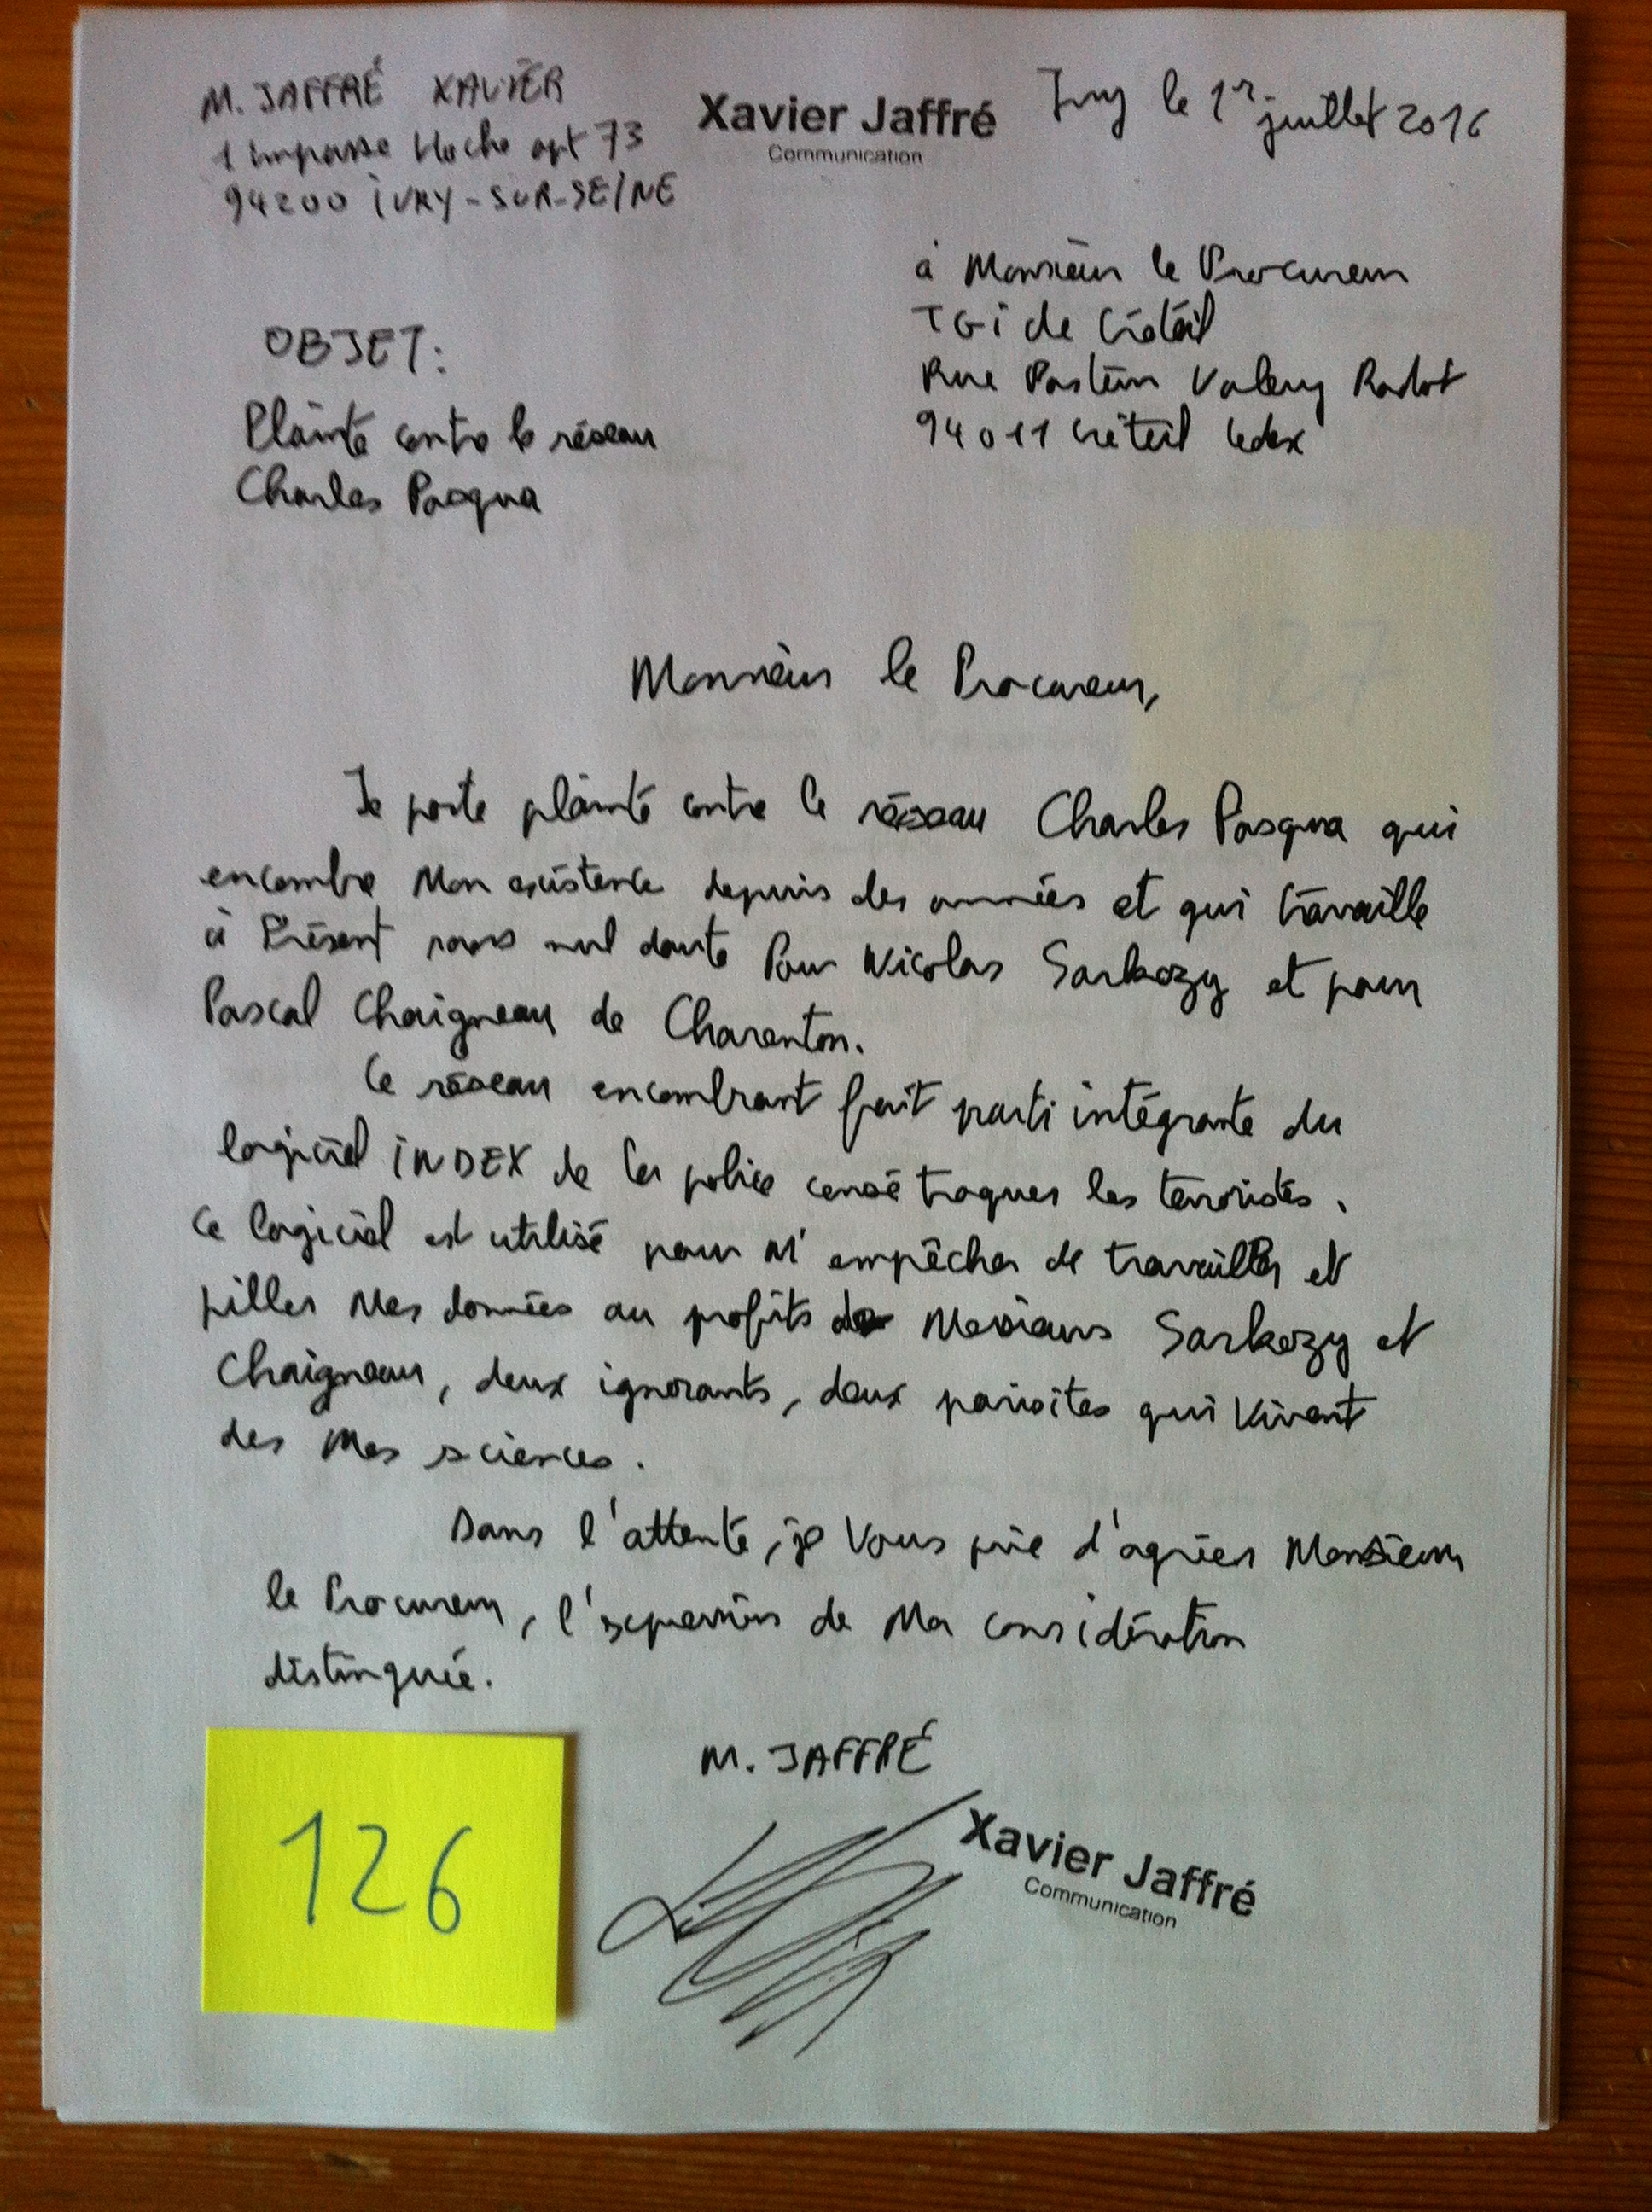 M. JAFFRÉ XAVIER
1 impasse Hoche apt 73
94200 IVRY-SUR-SEINE
Xavier Jaffré
Communication
Ivry le 1er juillet 2016
à Monsieur le Procureur
TGI de Créteil
Rue Pasteur Valery Radot
94011 Créteil Cedex
OBJET:
Plainte contre le réseau
Charles Pasqua
127
Monsieur le Procureur,
Je porte plainte contre le réseau Charles Pasqua qui
encombre mon existence depuis des années et qui travaille
à Présent sans nul doute Pour Nicolas Sarkozy et pour
Pascal Chaigneau de Charenton.
Ce réseau encombrant fait parti intégrante du
logiciel INDEX de la police censé traquer les terroristes.
Ce logiciel est utilisé pour m'empêcher de travailler et
piller mes données au profits de Messieurs Sarkozy et
Chaigneau, deux ignorants, deux parasites qui vivent
des mes sciences.
Dans l'attente, je vous prie d'agréer Monsieur
le Procureur, l'expression de ma considération
distinguée.
M. JAFFRÉ
Xavier Jaffré
Communication
126